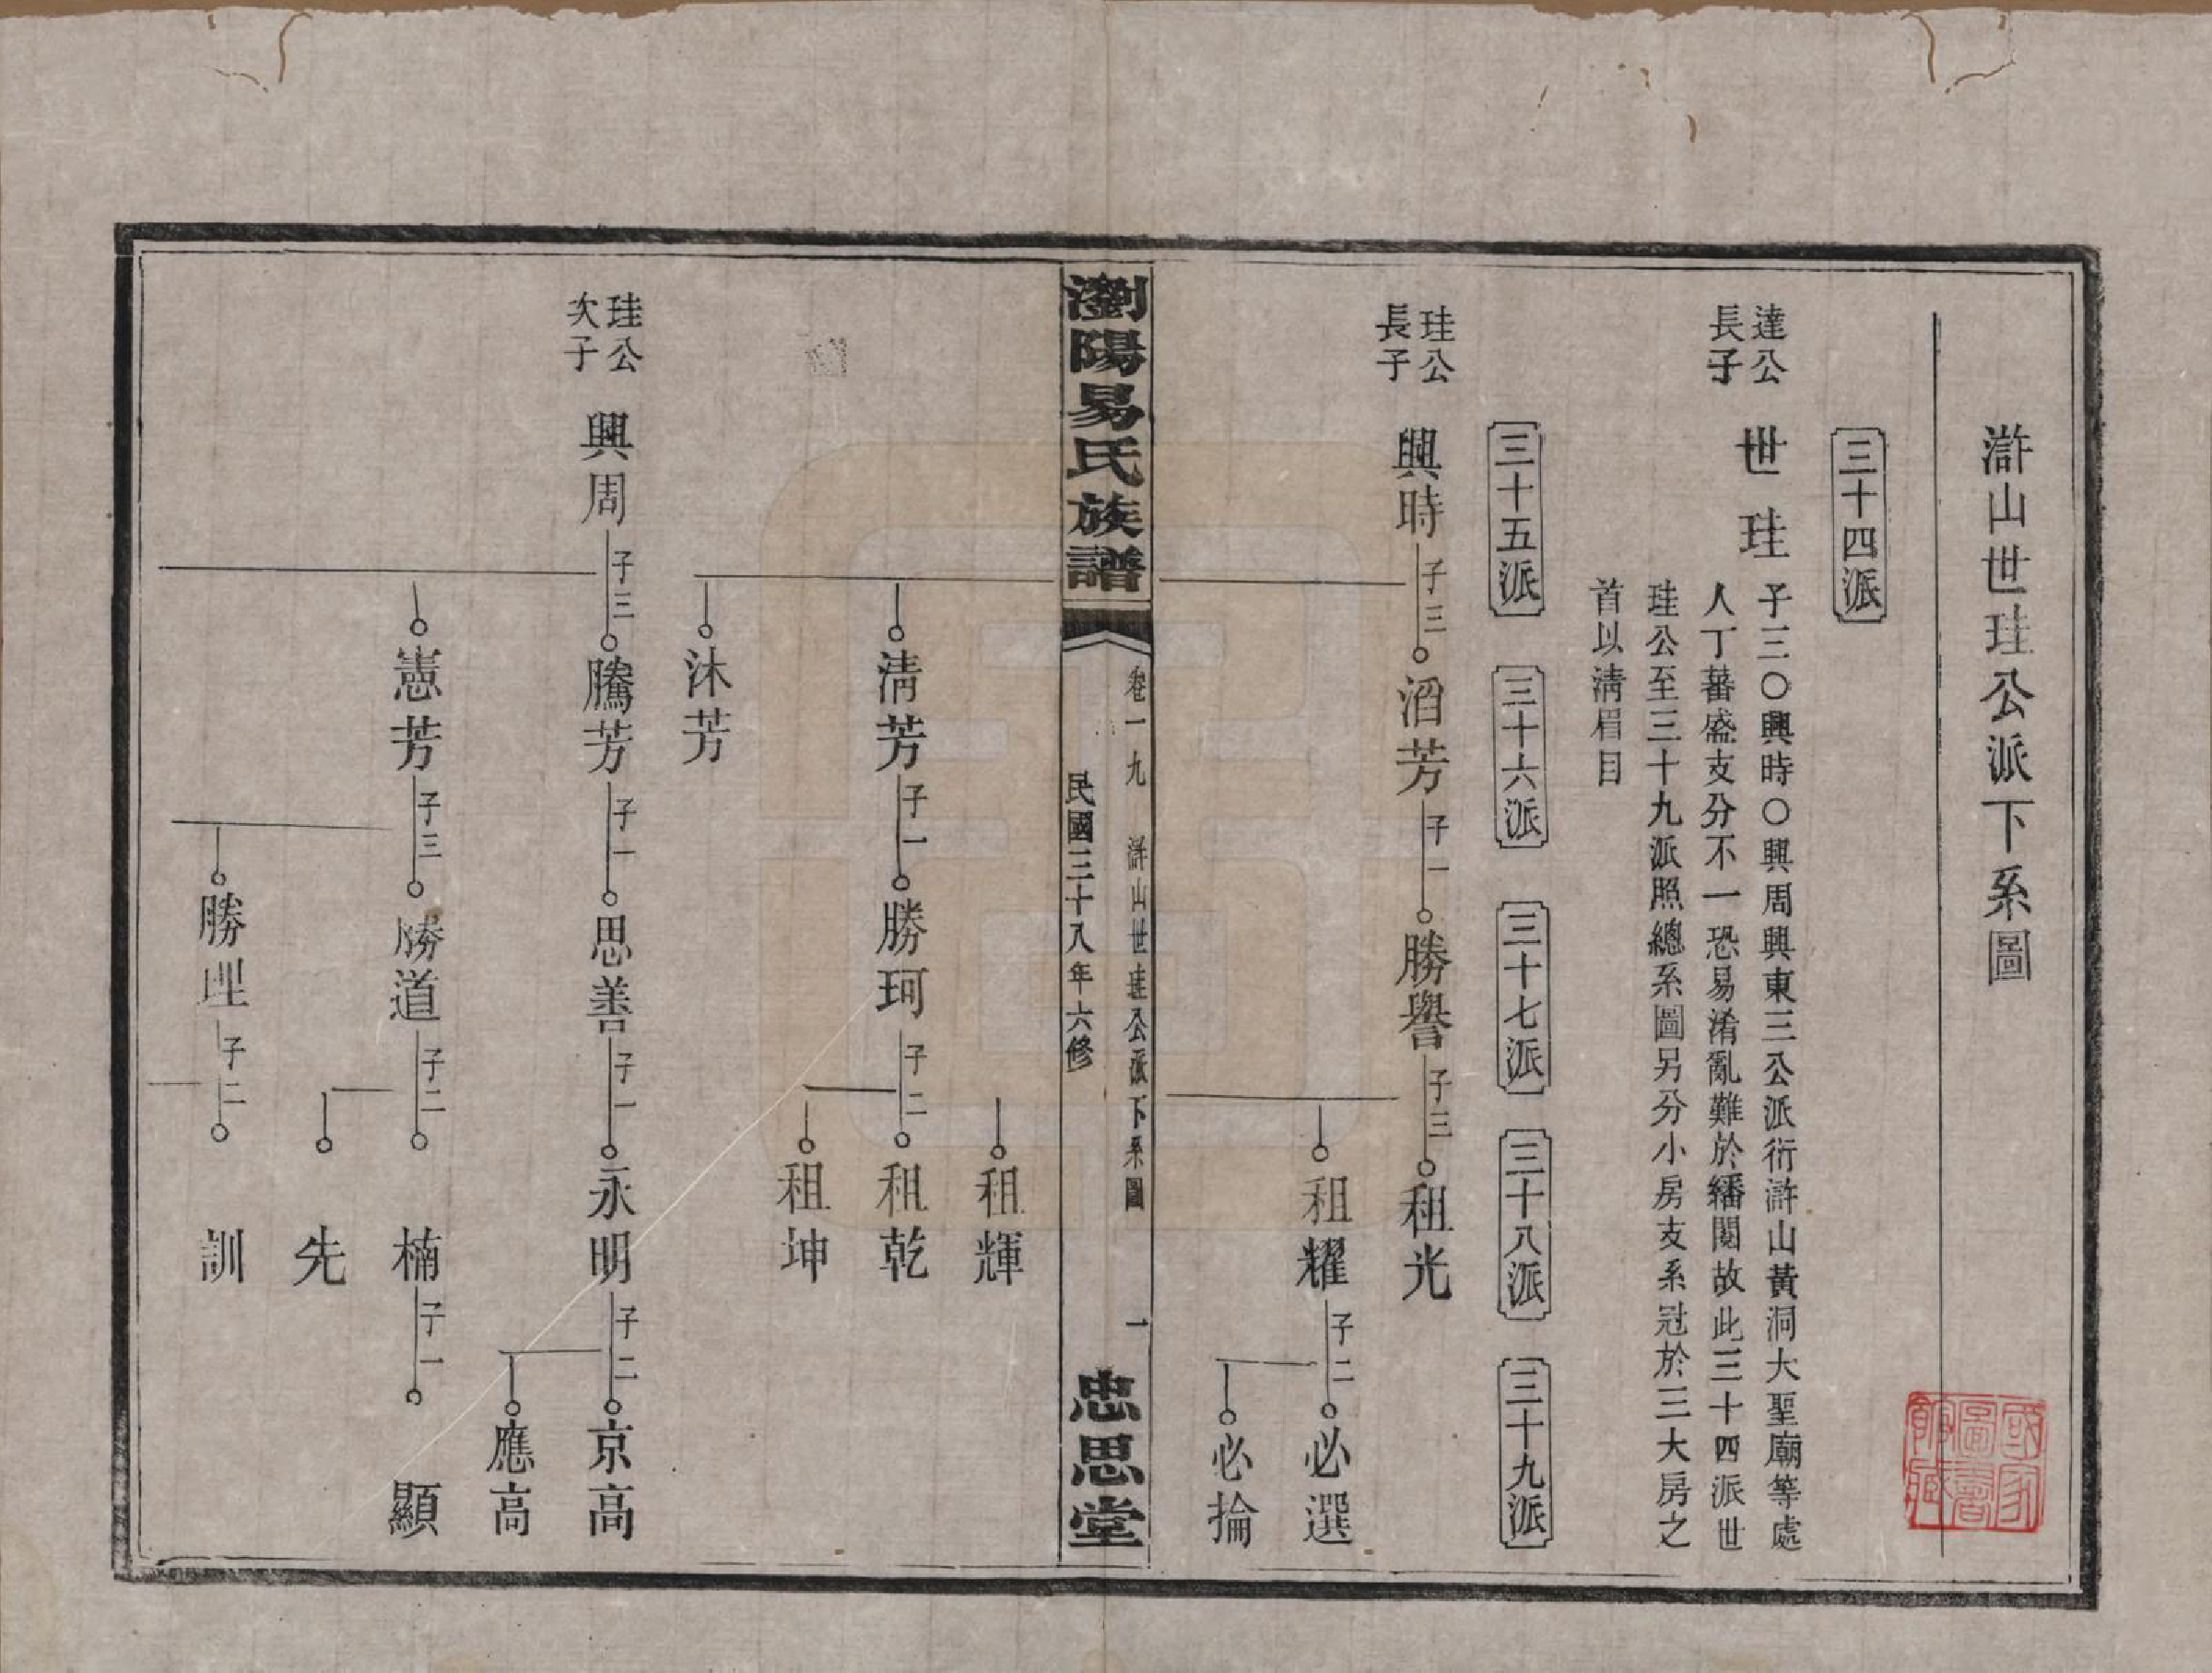 滸山世珪公派下系圖
三十四派
達公
長子
世珪
子三〇興時〇興周興東三公派衍滸山黃洞大聖廟等處
人丁蕃盛支分不一恐易淆亂難於繙閱故此三十四派世
珪公至三十九派照總系圖另分小房支系冠於三大房之
首以清眉目
三十五派
三十六派
三十七派
三十八派
三十九派
珪公
長子
興時 子三 滔芳 子一 勝譽 子三 祖光
祖耀 子二 必選
必掄
瀏陽易氏族譜
卷一九 滸山世珪公派下系圖 一
民國三十八年六修
忠思堂
祖輝
清芳 子一 勝珂 子二 祖乾
祖坤
沐芳
珪公
次子
興周 子三 騰芳 子一 思善 子一 永明 子二 京高
應高
憲芳 子三 勝道 子二 楠 子一 顯
先
勝理 子二 訓
國家圖書館藏